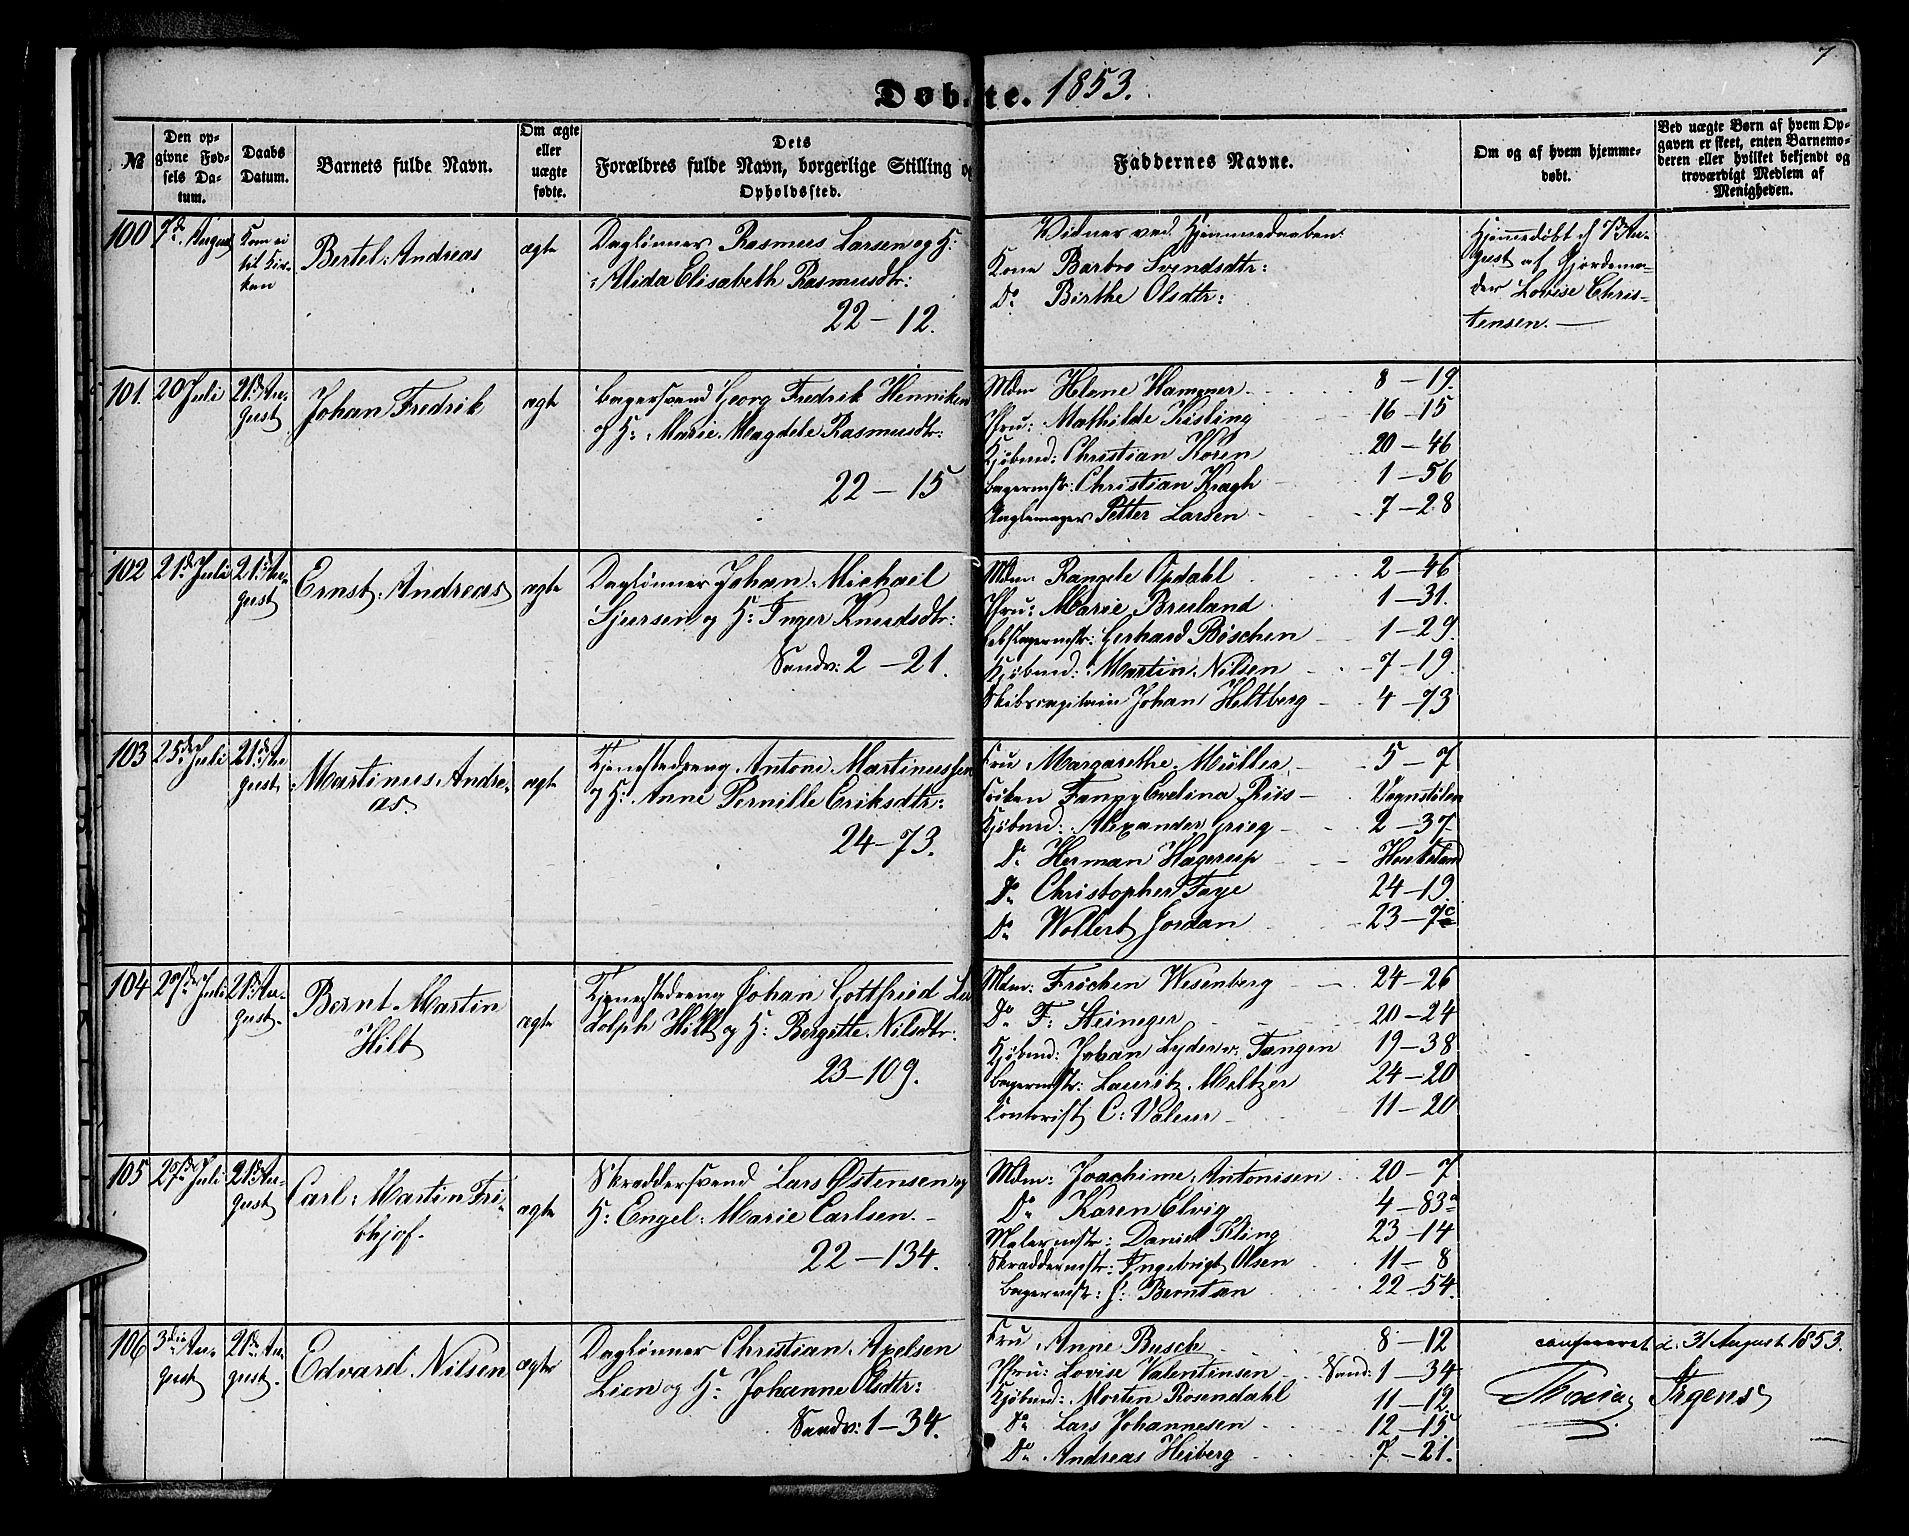 7
Døbte. 1853.
№
Den op-
givne Fød-
sels Da-
tum.
Daabs
Datum.
Barnets fulde Navn.
Om ægte
eller
uægte
fødte.
Dets
Forældres fulde Navn, borgerlige Stilling og
Opholdssted.
Faddernes Navne.
Om og af hvem hjemme-
døbt.
Ved uægte Børn af hvem Op-
gaven er skeet, enten Barnemo-
deren eller hvilket bekjendt og
troværdigt Medlem af
Menigheden.
100
7de August
Kom ei
til Kir-
ken
Bertel Andreas
ægte
Daglønner Rasmus Larsen og H:
Alida Elisabeth Rasmusdtr:
22 – 12.
Vidner ved Hjemmedaaben:
Kone Barbro Svendsdtr:
Do Birthe Olsdtr:
Hjemmedøbt d 7 Au-
gust af Gjordemo-
der Lovise Chris-
tensen. —
101.
20 Juli
21de Au-
gust
Johan Fredrik
ægte
Bagersvend Georg Fredrik Henriksen
og H: Marie Magdele Rasmusdtr:
22 – 15
Mdm Helene Hammer 8 – 19.
Jfru: Mathilde Kisling 16 – 15
Kjøbmd: Christian Koren 20 – 46
Bagermstr: Christian Kragh 1 – 56
Petter Larsen 7 – 28
102
21de Juli
21de Au-
gust
Ernst Andreas
ægte
Daglønner Johan Michail
Sjursen og H: Inger Knudsdtr:
Sandv: 2 – 21.
Mdm Rangele Opdahl 2 – 46
Jfru: Marie Bruland 1 – 31.
Rebslagermstr: Gerhard Böschen 1 – 29
Kjøbmd: Martin Nilsen 7 – 19
Skibscapitain Johan Heltberg 4 – 73
103
25de Juli
21de Au-
gust
Martinus Andre-
as.
ægte
Tjenestedreng Antoni Martinussen
og H: Anne Pernille Eriksdtr:
24 – 73.
Fru Margarethe Müller 5 – 7
Frøken Fanny Evelina Riis – Vognstølen
Kjøbmd: Alexander Grieg 2 – 37
Do Herman Hagerup – Haukeland
Do Christopher Faye 24 – 19
Do Wollert Jordan 23 – 7c
104
27de Juli
21de Au-
gust.
Bernt Martin
Hilt
ægte
Tjenestedreng Johan Gottfried Lu
dolph Hilt og H: Bergitte Nilsdtr:
23 – 109.
Mdm: Frichen Wesenberg 24 – 26
Do F: Steineger 20 – 24
Kjøbmd: Johan Lyder v: Tangen 19 – 38
Bagermstr: Lauritz Meltzer 24 – 20
Contorist C: Valeur 11 – 20
105
27de Juli
21de Au-
gust
Carl Martin Fri-
thjof.
ægte
Skræddersvend Lars Østensen og
H: Engel Marie Carlsen. –
22 – 134.
Mdm: Joachime Antonisen 20 – 7
Do Karen Elvig 4 – 83a
Malermstr: Daniel Kling 23 – 14
Skræddermstr: Ingebrigt Olsen 11 – 8
Bagermstr: J: Berntzen 22 – 54.
106
3die Au-
gust
21de Au-
gust.
Edvard Nilsen
ægte
Daglønner Christian Axelsen
Lien og H: Johanne Olsdtr:
Sandv: 1 – 34.
Fru Anne Busch 8 – 12
Jfru: Lovise Valentinsen Sand: 1 – 34
Kjøbmd: Morten Rosendahl 11 – 12
Do Lars Johannesen 12 – 15
Do Andreas Heiberg 7 – 21.
confereret d. 31 August 1853.
Irgens